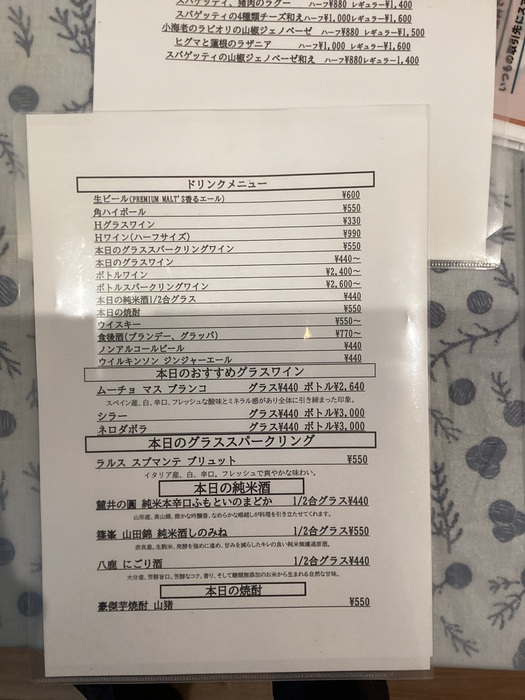 スパゲッティ、猪肉のラグー ハーフ¥880 レギュラー¥1,400
スパゲッティの4種類チーズ和え ハーフ¥1,000 レギュラー¥1,600
小海老のラビオリの山椒ジェノベーゼ ハーフ¥880 レギュラー¥1,500
ヒグマと蓮根のラザニア ハーフ¥1,000 レギュラー¥1,600
スパゲッティの山椒ジェノベーゼ和え ハーフ¥880レギュラー1,400
いつもの取引先にス
ドリンクメニュー
生ビール(PREMIUM MALT'S香るエール) ¥600
角ハイボール ¥550
Hグラスワイン ¥330
Hワイン(ハーフサイズ) ¥990
本日のグラススパークリングワイン ¥550
本日のグラスワイン ¥440～
ボトルワイン ¥2,400～
ボトルスパークリングワイン ¥2,600～
本日の純米酒1/2合グラス ¥440
本日の焼酎 ¥550
ウイスキー ¥550～
食後酒(ブランデー、グラッパ) ¥770～
ノンアルコールビール ¥440
ウイルキンソン ジンジャーエール ¥440
本日のおすすめグラスワイン
ムーチョ マス ブランコ グラス¥440 ボトル¥2,640
スペイン産、白、辛口、フレッシュな酸味とミネラル感があり全体に引き締まった印象。
シラー グラス¥440 ボトル¥3,000
ネロダボラ グラス¥440 ボトル¥3,000
本日のグラススパークリング
ラルス スプマンテ ブリュット ¥550
イタリア産、白、辛口、フレッシュで爽やかな味わい。
本日の純米酒
麓井の圓 純米本辛口ふもといのまどか 1/2合グラス¥440
山形産、美山錦、微かな吟醸香、なめらかな喉越しが料理を引き立たせてくれます。
篠峯 山田錦 純米酒しのみね 1/2合グラス¥550
奈良産、生酛米、発酵を強めに進め、甘みを減らしたキレの良い純米無濾過原酒。
八鹿 にごり酒 1/2合グラス¥440
大分産、芳醇旨口、芳醇なコク、香り、そして糖類無添加のお米から生まれる自然な甘味。
本日の焼酎
豪傑芋焼酎 山猪 ¥550